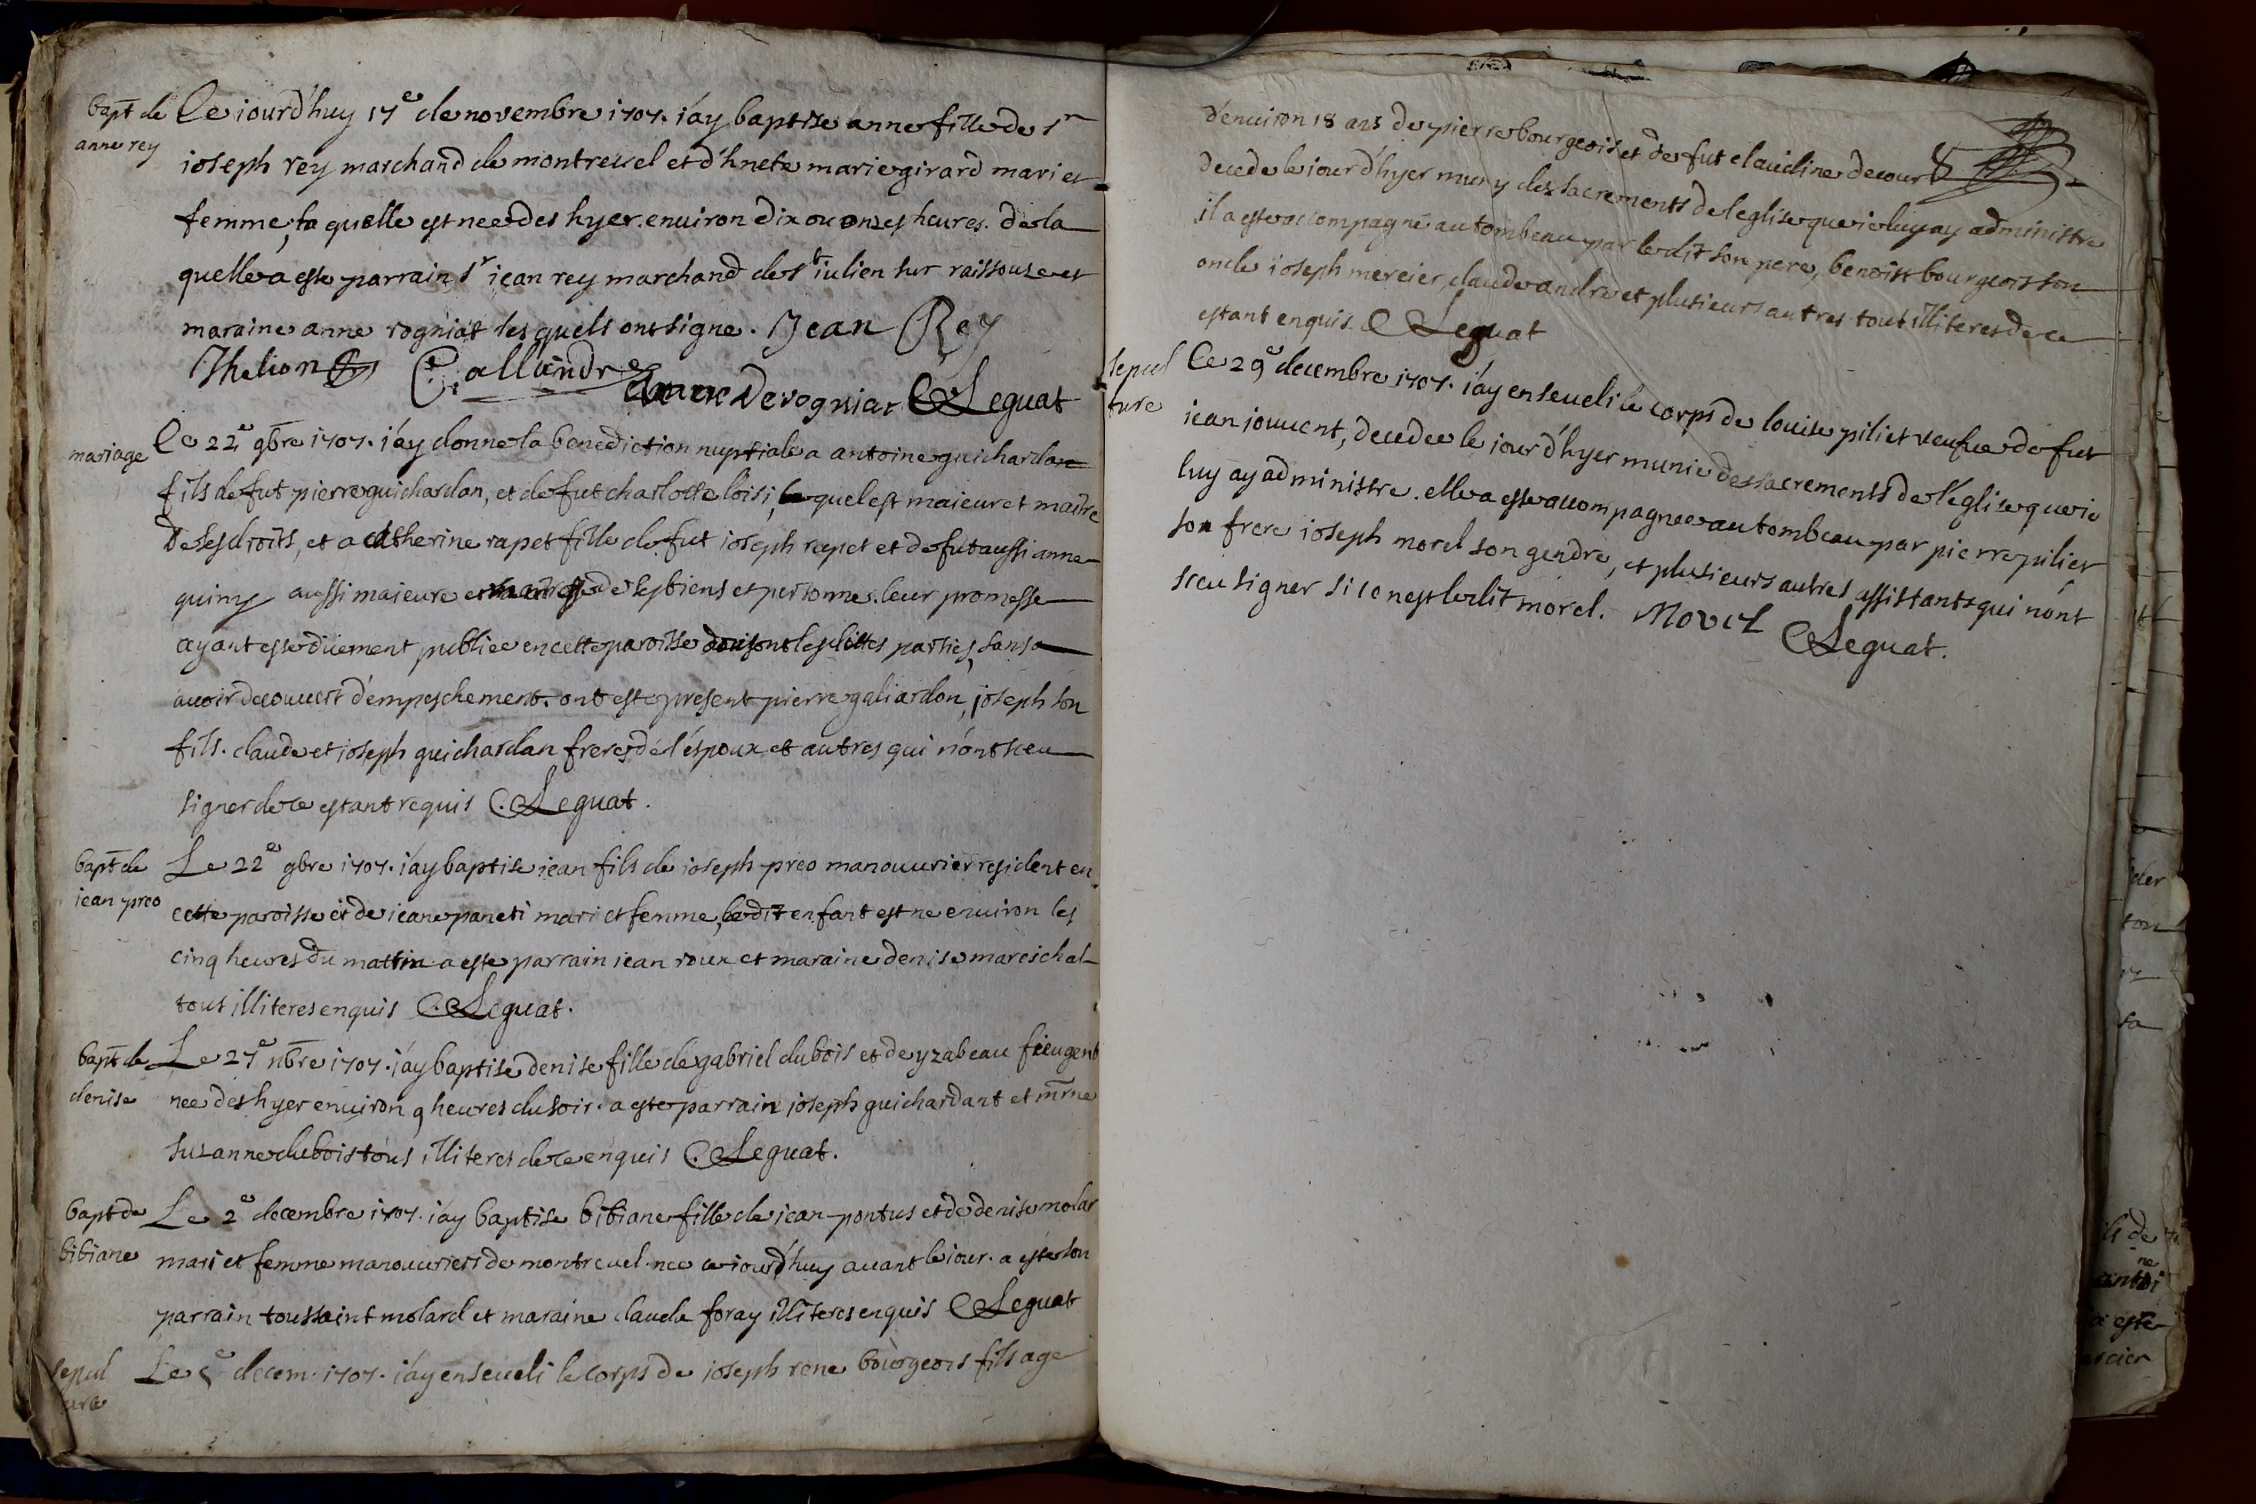 bapt de
anne rey
Ce iourd'huy 17e de novembre 1707. i'ay baptise anne fille de Sr
ioseph rey marchand de montrevel et d'hnete marie girard mari et
femme, la quelle est nee des hyer environ dix ou onzes heures. de la
quelle a este parrain Sr iean rey marchand de St iulien sur raissouze et
maraine anne rogniat les quels ont signe. Jean Rey
Thelion C. allandre
anne De rogniat C Leguat
mariage
Ce 22e 9bre 1707. i'ay donne la benediction nuptiale a antoine guichardan
fils de fut pierre guichardan, et de fut charlotte loisi, le quel est maieur et maitre
de ses droits, et a catherine rapet fille de fut ioseph rapet et de fut aussi anne
quiny aussi maieure et maitresse de ses biens et personne. leur promesse
ayant este duement publiee en cette paroisse dou sont lesdittes parties, sans
avoir decouvert d'empeschement. ont este present pierre galiardon, joseph son
fils. claude et ioseph guichardan freres de l'espoux et autres qui n'ont sceu
signer de ce estant requis C. Leguat.
bapt de
iean preo
Le 22e 9bre 1707. i'ay baptise iean fils de ioseph preo manouvrier resident en
cette paroisse et de ieane paneti mari et femme, ledit enfant est ne environ les
cinq heures du mattin a este parrain iean roux et maraine denise mareschal
tous illiteres enquis C. Leguat.
bapt de
denise
Le 27e nbre 1707. i'ay baptise denise fille de gabriel dubois et de yzabeau feeugent
nee des hyer environ 9 heures du soir. a este parrain ioseph guichardant et mrne
suzanne dubois tous illiteres de ce enquis C. Leguat.
bapt de
bibiane
Le 2e decembre 1707. i'ay baptise bibiane fille de iean pontus et de denise molar
mari et femme manouvriers de montrevel. nee ce iourd'huy avant le iour. a este son
parrain toussaint molard et maraine claude foray illiteres enquis C Leguat
sepul
ture
Le 5e decem. 1707. i'ay enseveli le corps de ioseph rene bourgeois fils age
d'environ 18 ans de pierre bourgeois et de fut claudine decour
decede le iour d'hyer muny des sacrements de l'eglise que ie luy ay administre
il a este accompagne au tombeau par ledit son pere, benoist bourgeois son
oncle ioseph mercier, claude andre et plusieurs autres tout illiteres de ce
estant enquis C Leguat
sepul
ture
Ce 29e decembre 1707. i'ay enseveli le corps de louise piliet veufve de fut
iean jouvent, decedee le iour d'hyer munie des sacrements de l'eglise que ie
luy ay administre. elle a este accompagnee au tombeau par pierre pilier
son frere ioseph morel son gendre, et plusieurs autres assistants qui n'ont
sceu signer si ce n'est ledit morel. Morel C Leguat.